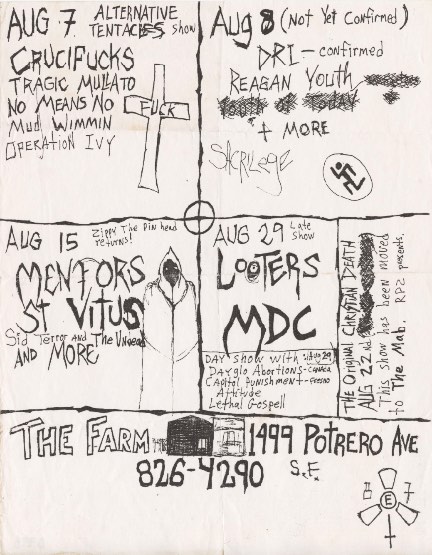 AUG 7 ALTERNATIVE
TENTACLES show
CRUCIFUCKS
TRAGIC MULLATO
NO MEANS NO
Mud Wimmin
OPERATION IVY
FUCK
Aug 8 (Not Yet Confirmed)
DRI - confirmed
REAGAN YOUTH
YOUTH OF TODAY
+ MORE
SACRILEGE
AUG 15 Zippy The Pin head
returns!
MENTORS
St VITUS
Sid Terror and The Undead
AND MORE
AUG 29 Late
show
LOOTERS
MDC
DAY show with Aug 29
Dayglo Abortions - CANADA
Capitol Punishment - Fresno
Attitude
Lethal Gospell
THE Original CHRISTIAN DEATH
AUG 22nd
This show has been moved
to The Mab. RPZ presents.
THE FARM 1499 POTRERO AVE
826-4290 S.F.
8 E 7